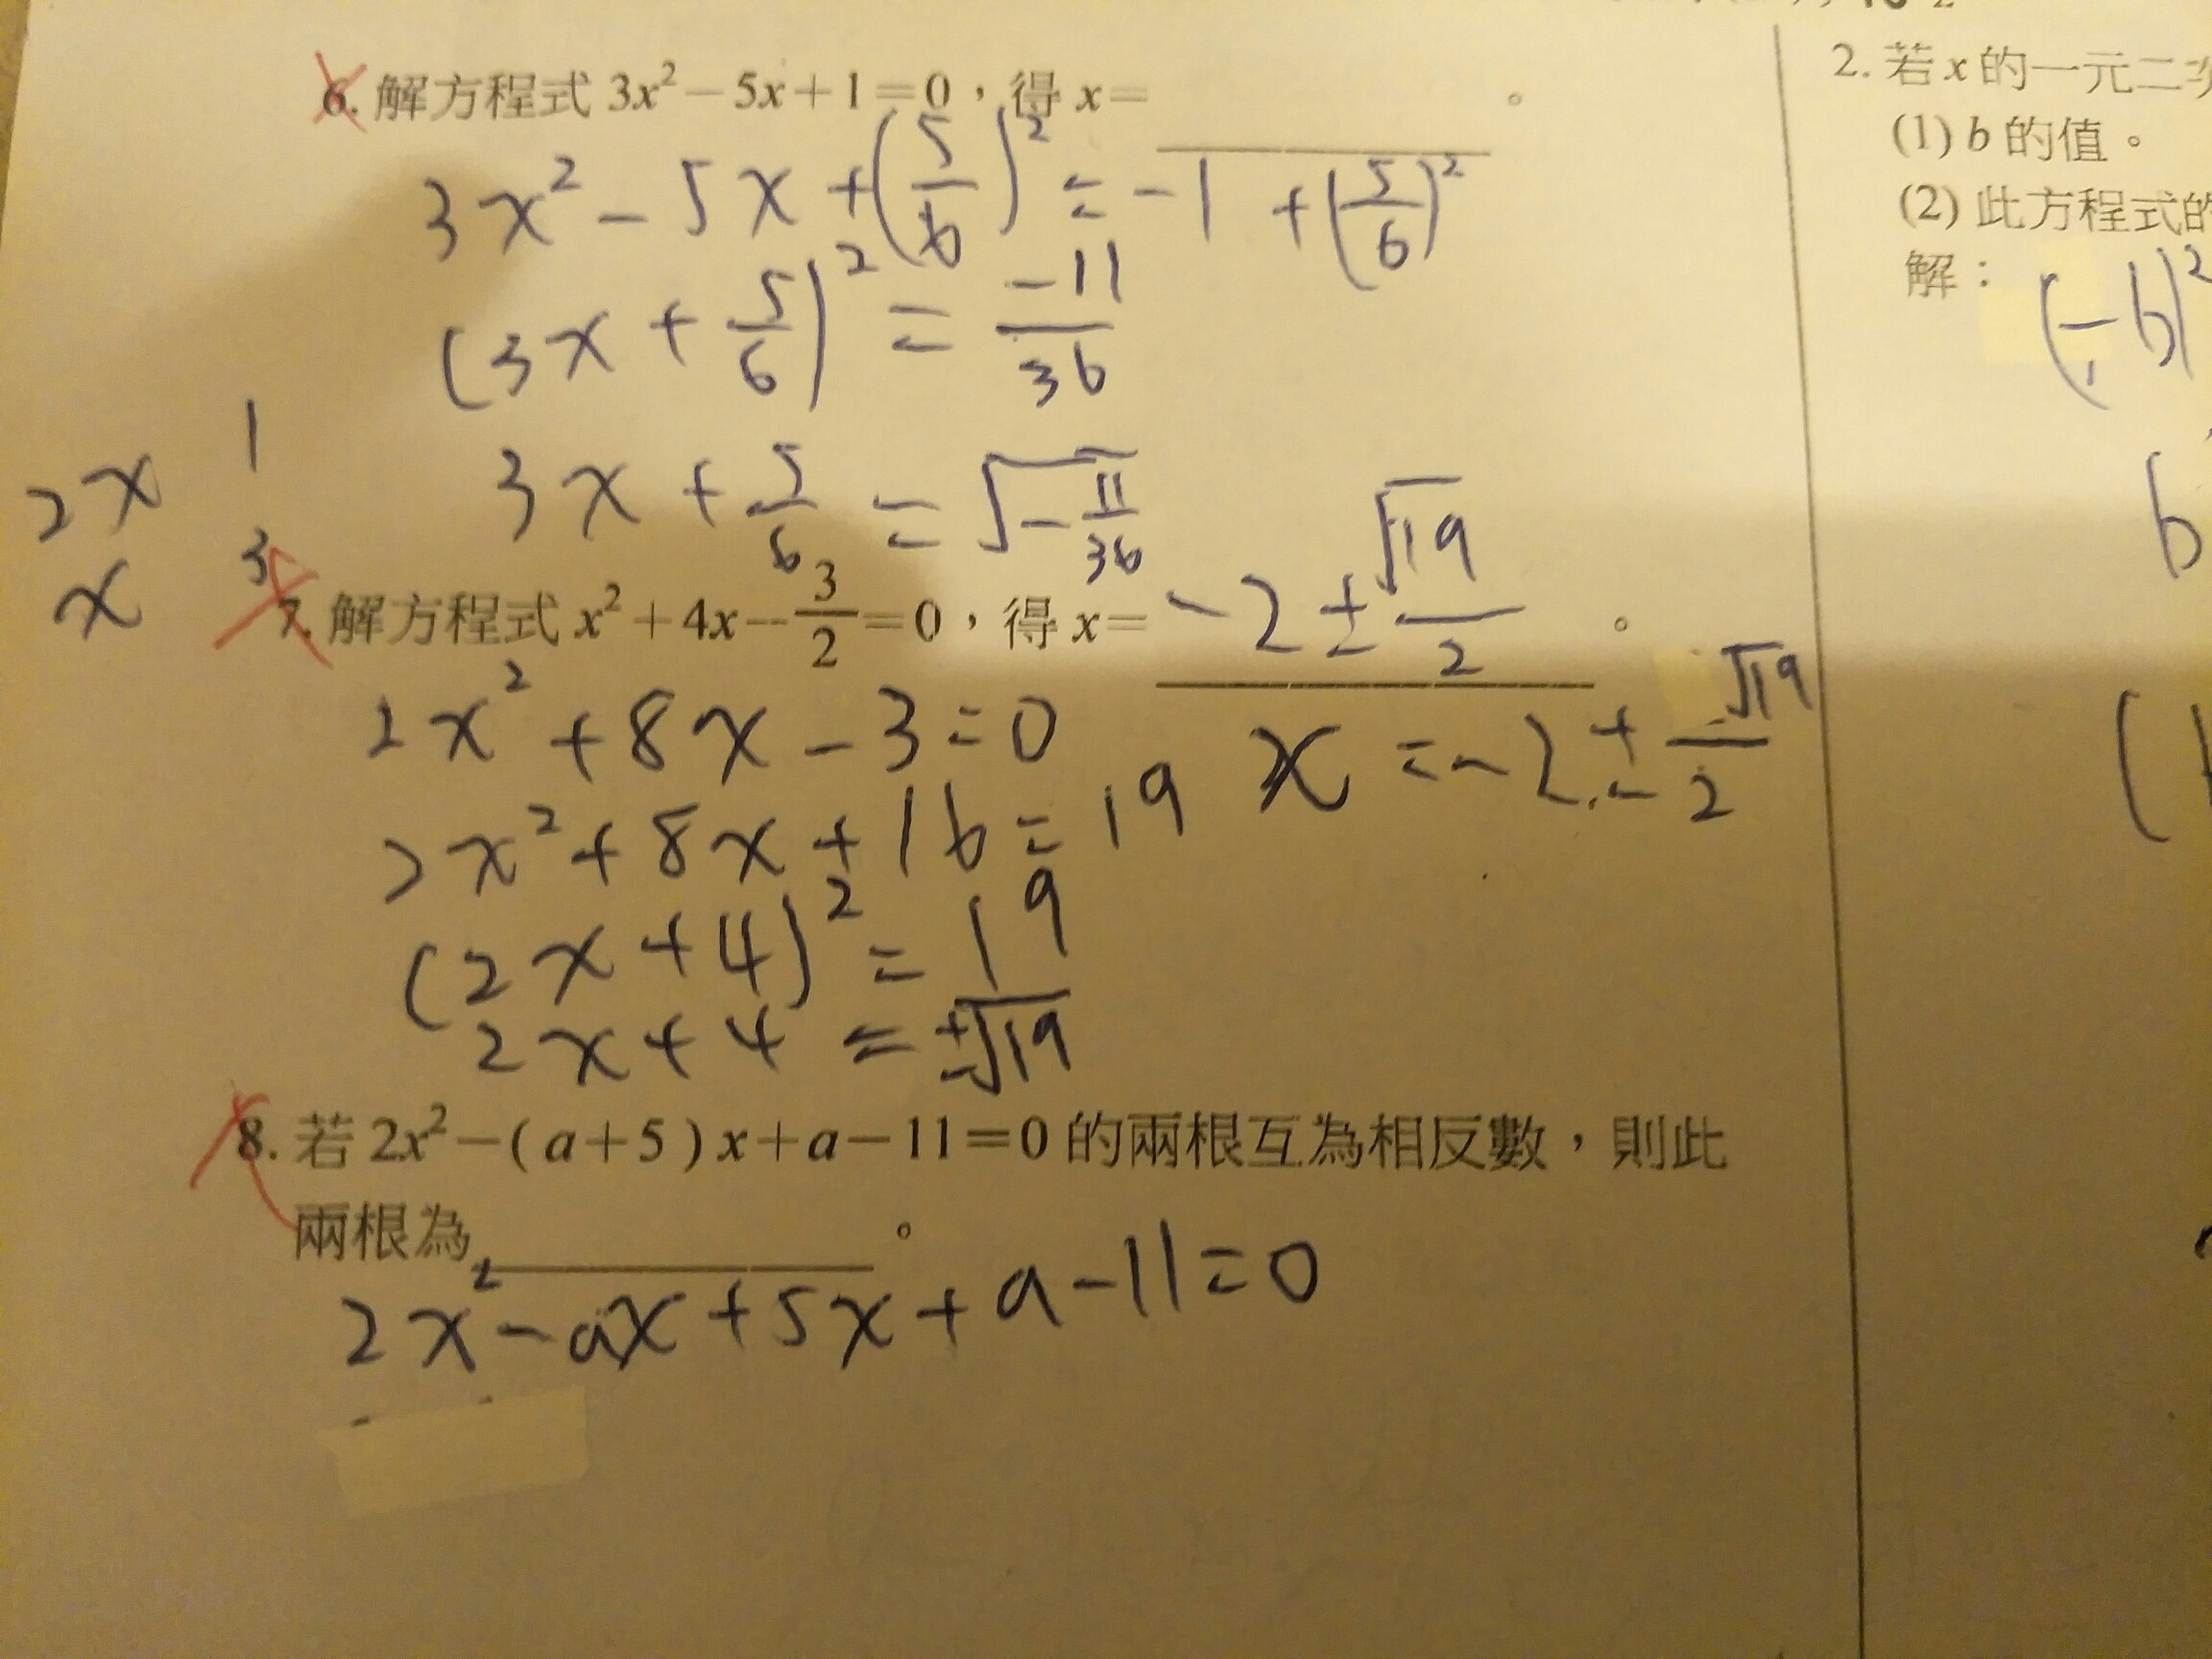 6. 解方程式 3x²－5x＋1＝0，得 x＝ 。
3x²－5x＋(5/6)²＝－1＋(5/6)²
(3x＋5/6)²＝－11/36
3x＋5/6＝√－11/36
2x 1
x 3
7. 解方程式 x²＋4x－3/2＝0，得 x＝ －2±√19/2 。
2x²＋8x－3＝0
x＝－2±√19/2
2x²＋8x＋16＝19
(2x＋4)²＝19
2x＋4＝±√19
8. 若 2x²－(a＋5)x＋a－11＝0 的兩根互為相反數，則此
兩根為 。
2x²－ax＋5x＋a－11＝0
2. 若 x 的一元二次
(1) b 的值。
(2) 此方程式的
解：
(－b)²
b